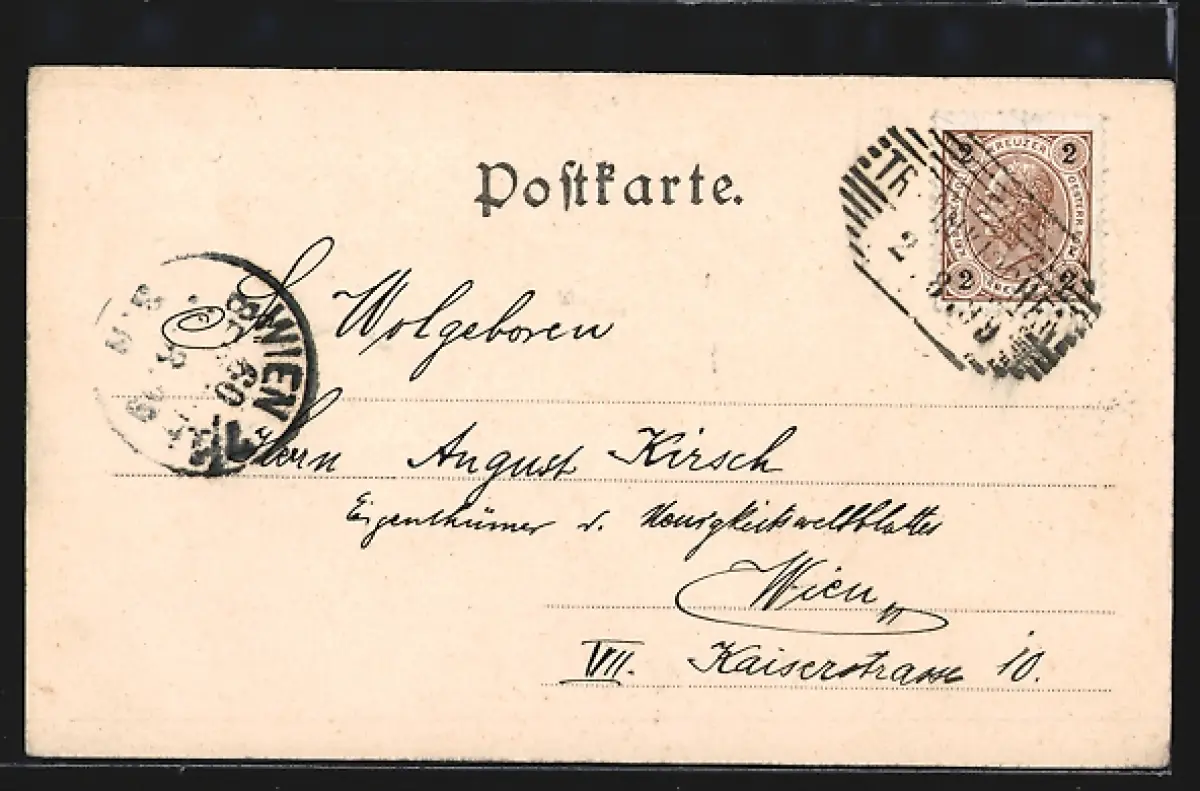 Postkarte.
2 KREUZER 2
2 2
WIEN
Sr Wolgeboren
Herrn August Kirsch
Eigenthümer d. Neuigkeitsweltblattes
Wien
VII. Kaiserstrasse 10.